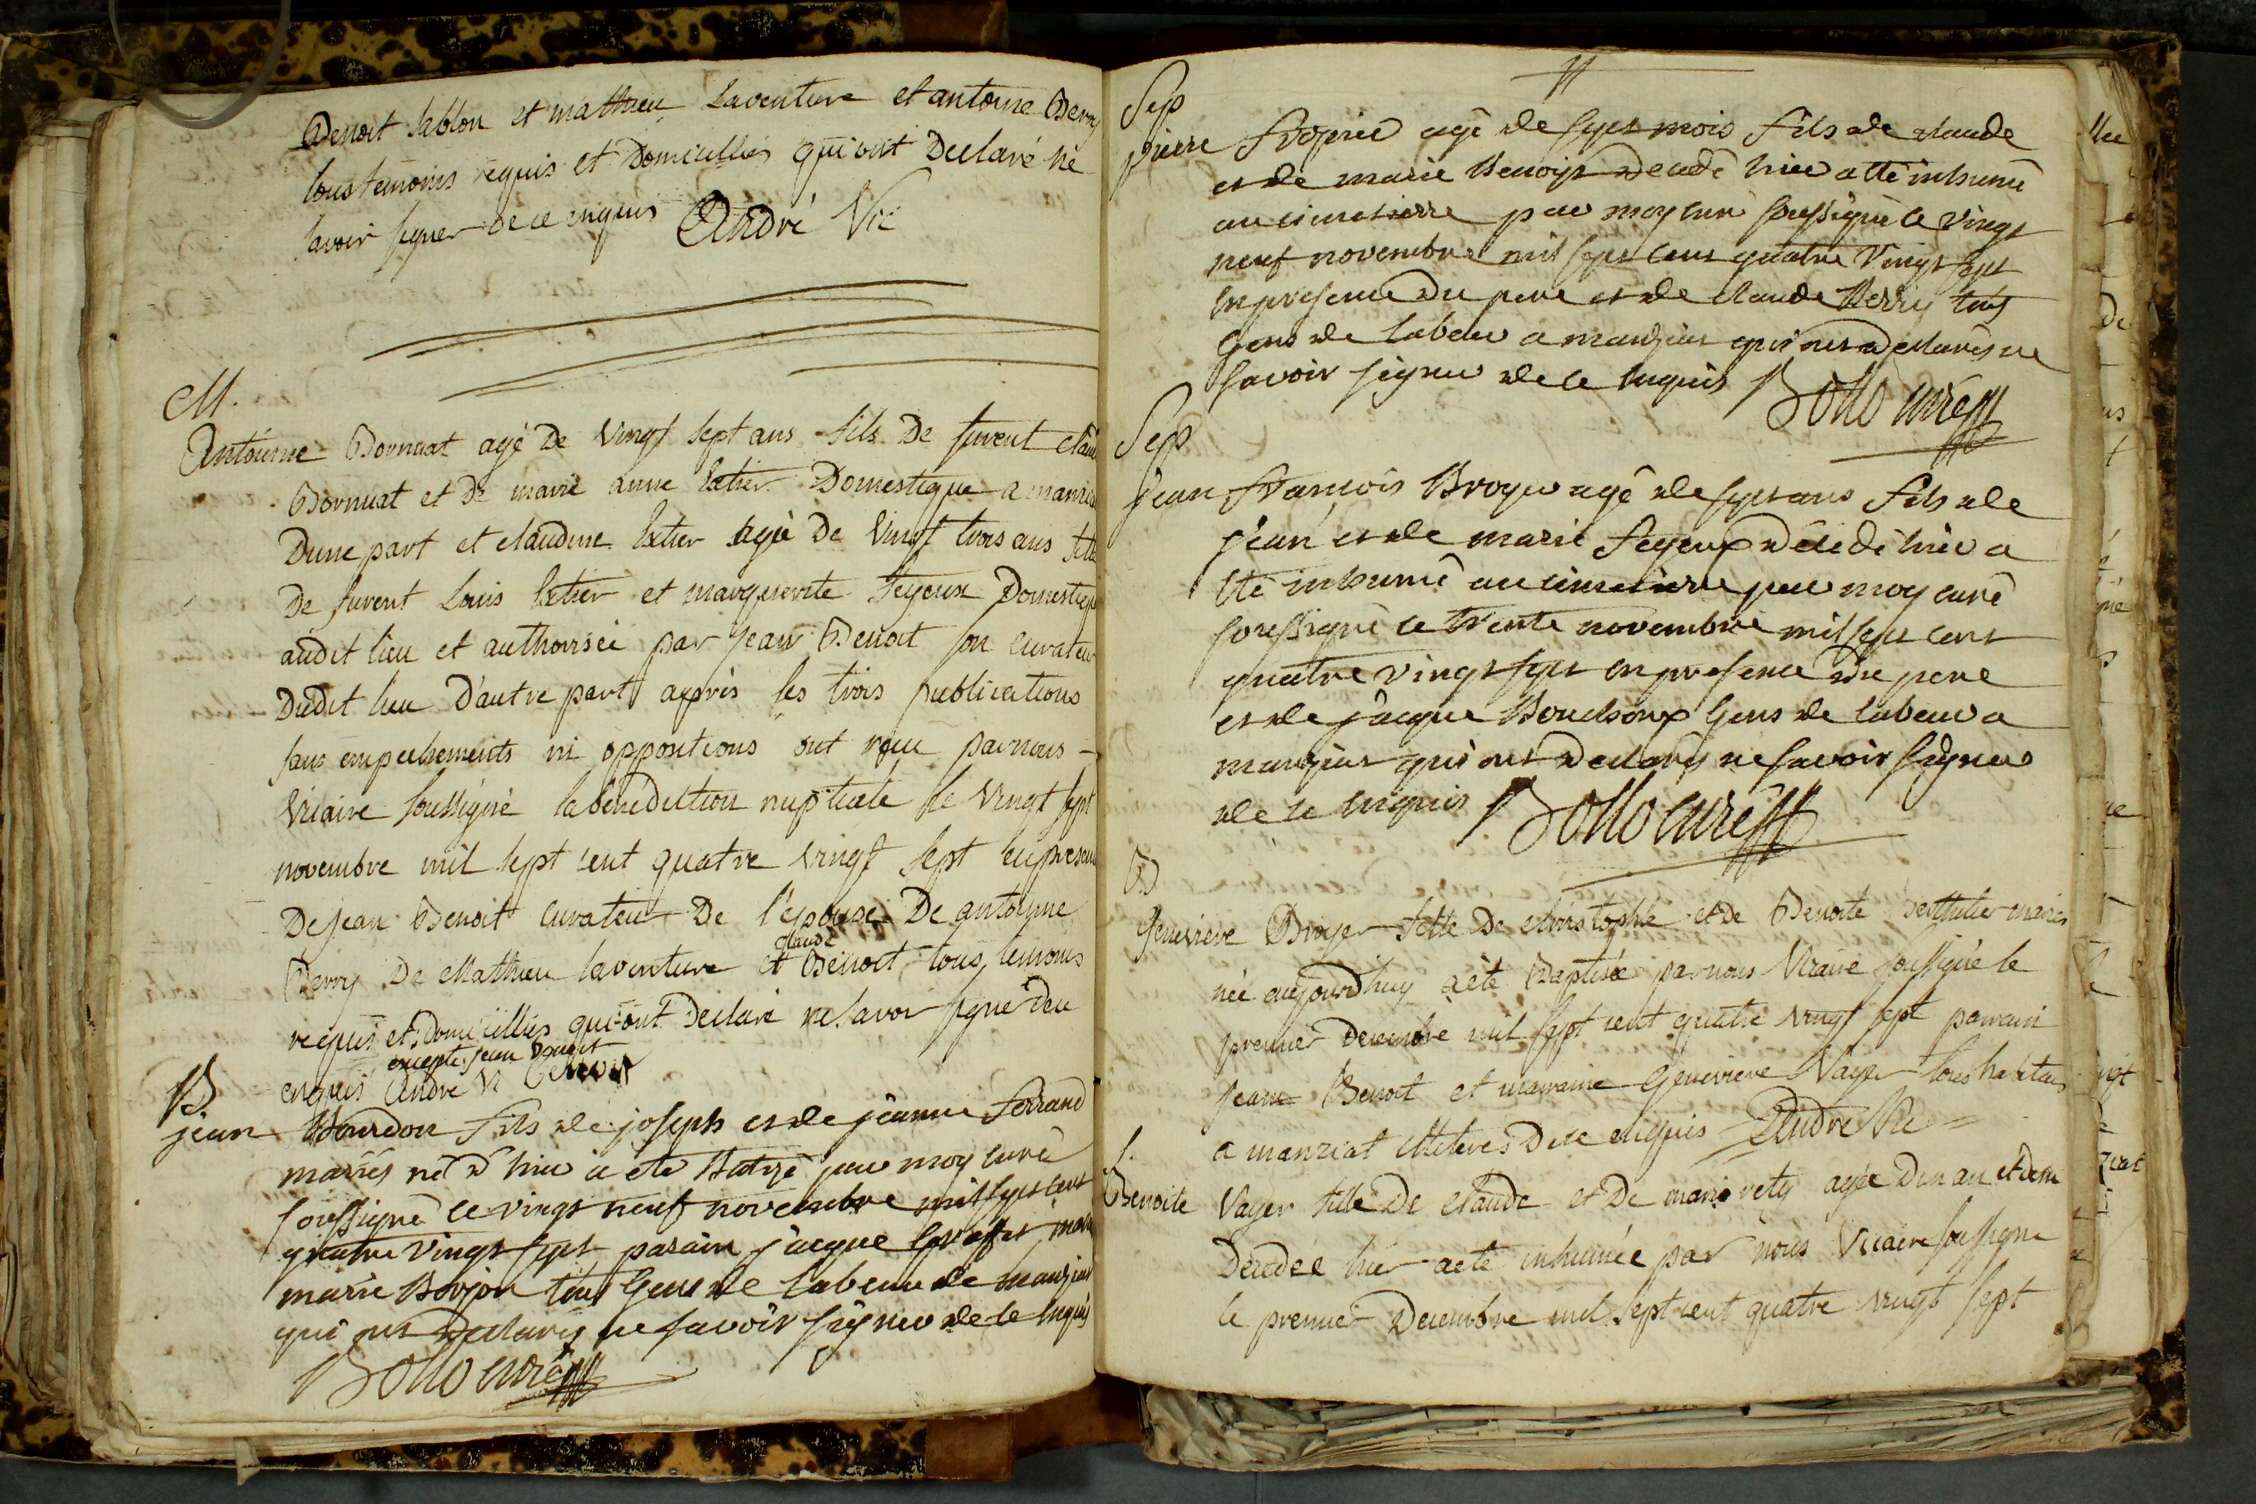 Benoit Sablon et mathieu Laventure et antoine Berry
tous temoins requis et Domicilliés qui ont Declaré ne
savoir signer de ce enquis André Vic
M.
Antoinne Bornuat agé De Vingt sept ans fils De fuent Claude
Bornuat et De marie anne Extier Domestique a manziat
Dune part et claudine Extier agée De Vingt trois ans fille
De fuvent Louis Extier et marguerite feyeux Domestique
audit lieu et authorisée par Jean Benoit son curateur
Dudit lieu D'autre part après les trois publications
sans empechements ni oppositions ont reçu parnous
Vicaire soussigné la bénédiction nuptiale le Vingt sept
novembre mil sept cent quatre vingt sept en presence
De jean Benoit curateur De l'épouse De antoinne
Berry De Mathieu laventure et claude Benoit tous temoins
requis et Domicilliés qui ont Declaré ne savoir signé Dece
excepté jean Benoit
enquis André Vi Benoit
B.
jean Bourdon fils de joseph et de jeanne ferrand
mariés né d'hier a ete Batizé par moy curé
soussigné ce vingt neuf novembre mil sept cent
quatre vingt sept parain jacque maraine
marie Borjon tous Gens de labeur de manziat
qui ont Declarés ne savoir signer de ce enquis
Bollo curé
Sep
pierre fropier agé de sept mois fils de claude
et de marie Benoist decedé hier atté inhumé
au cimetierre par moy curé soussigné ce vingt
neuf novembre mil sept cent quatre Vingt sept
en presence du pere et de claude Berry tous
Gens de labeur a manziat qui ont declarés ne
savoir signer de ce enquis Bollo curé
Sep
jean françois Broyer agé de sept ans fils de
jean et de marie feyeux décédé hier a
été inhumé au cimetierre par moy curé
soussigné ce trente novembre mil sept cent
quatre vingt sept en presence du pere
et de jacque Boudsoux Gens de labeur a
manziat qui ont declarés ne savoir signer
de ce enquis Bollo curé
B
Genevieve Broyer fille De christophe et de Benoite Berthelier mariés
née aujourdhuy a été Baptisée par nous Vicaire soussigné le
premier decembre mil sept cent quatre vingt sept parrain
jean Benoit et marraine Genevieve Vayer tous habitans
a manziat illiterés De ce enquis André Vic
S.
Benoite Vayer fille De claude et De marie vety agée Dun an et demi
Decedee hier a eté inhumée par nous Vicaire soussigné
le premier Decembre mil sept cent quatre vingt sept